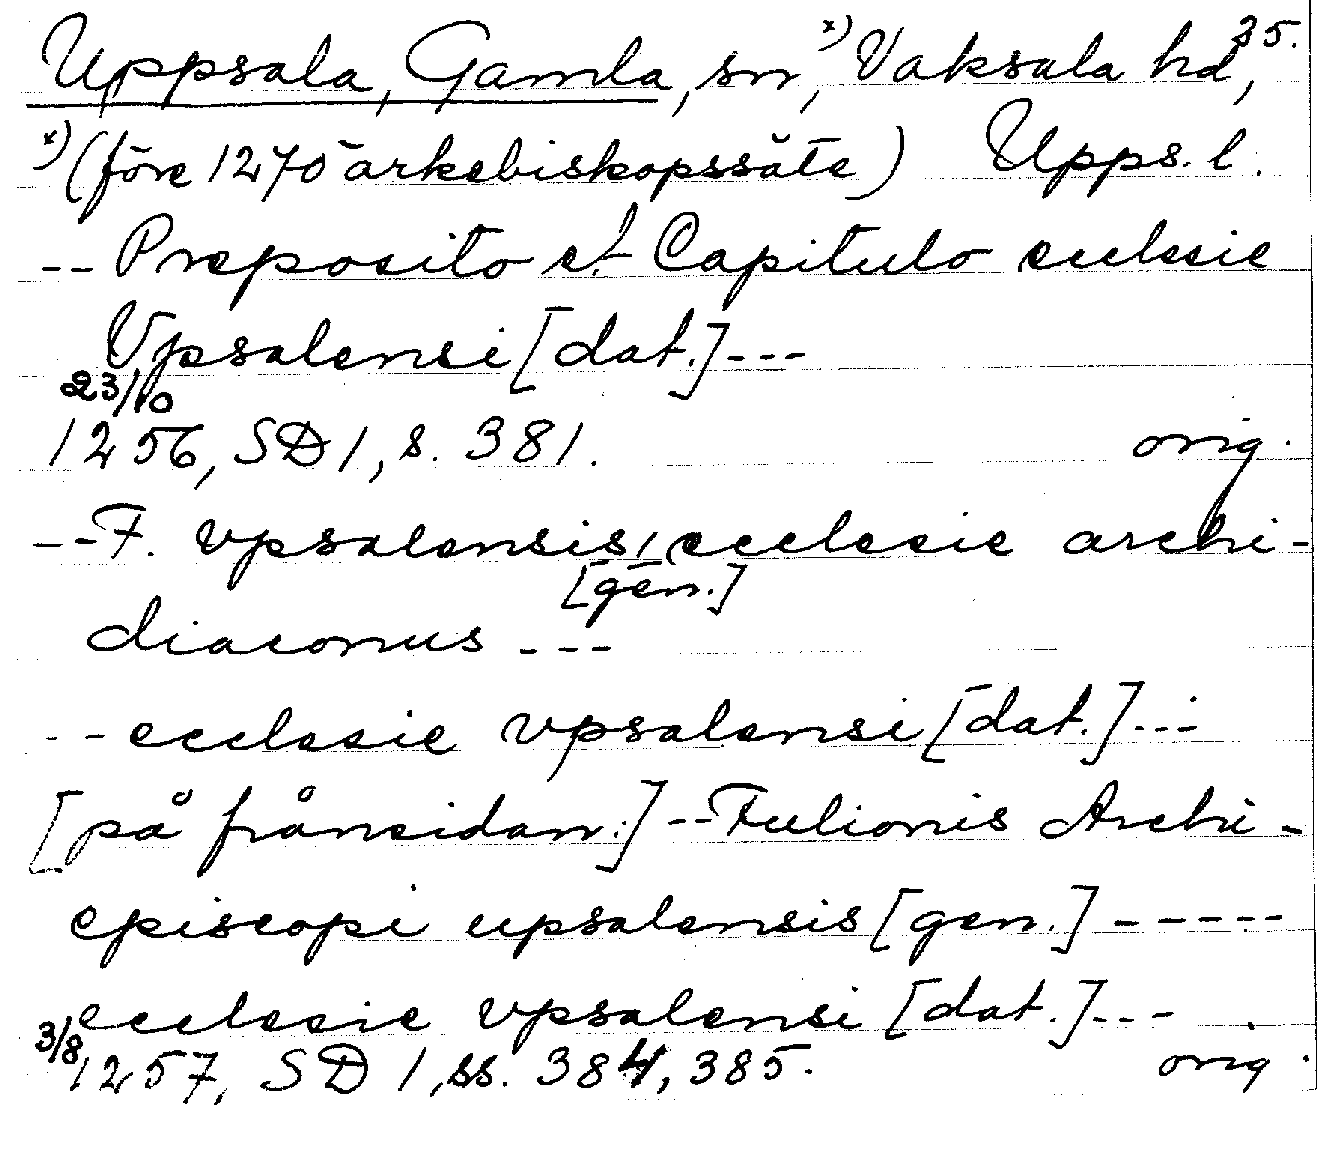 35.
Uppsala, Gamla, sn, x) Vaksala hd,
x) (före 1270 ärkebiskopssäte) Upps. l.
-- Preposito et Capitulo ecclesie
Vpsalensi [dat.] ---
23/10
1256, SD 1, s. 381. orig.
-- F. vpsalensis, ecclesie archi-
[gen.]
diaconus ---
-- ecclesie vpsalensi [dat.] ---
[på frånsidan:] -- Fulionis Archi-
episcopi upsalensis [gen.] -----
ecclesie vpsalensi [dat.] ---
3/8 1257, SD 1, ss. 384, 385. orig.